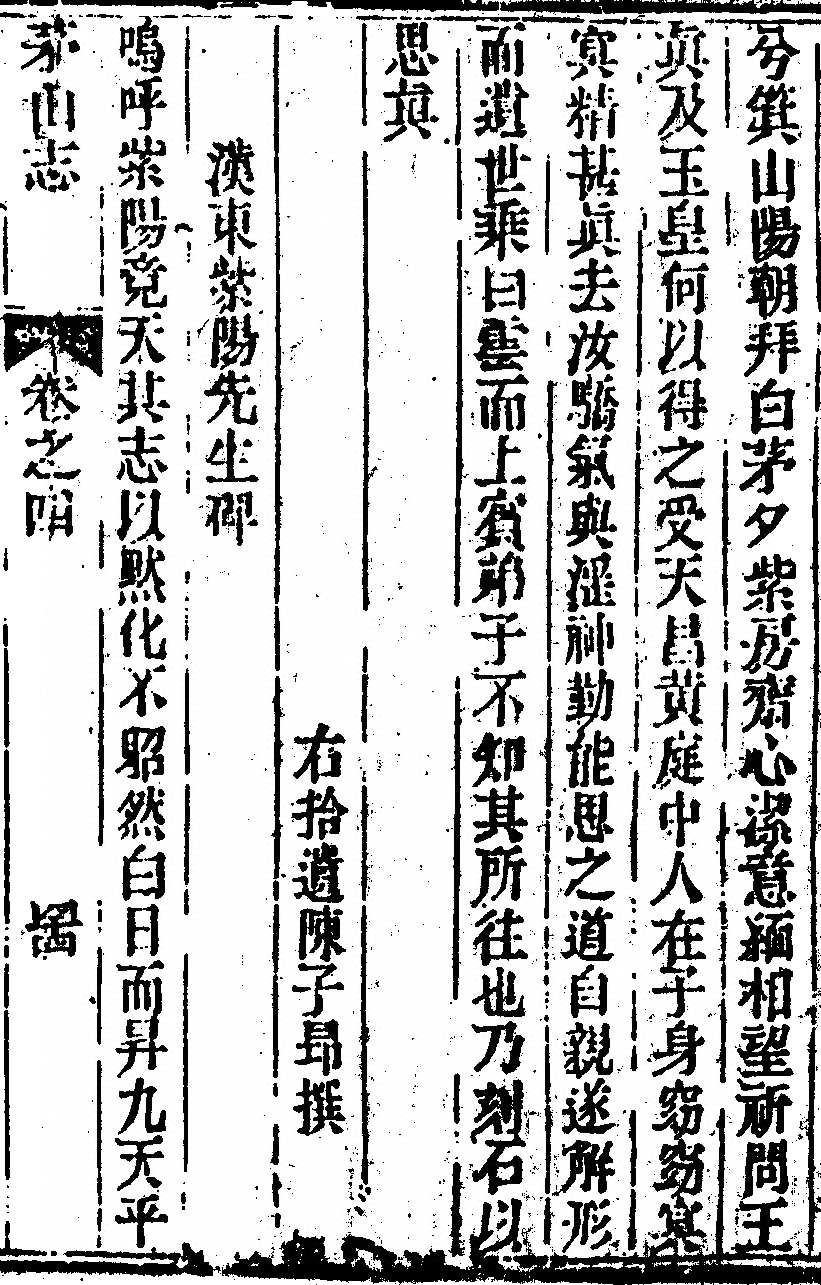 兮箕山陽朝拜白茅夕紫房齋心潔意緬相望祈問王
眞及玉皇何以得之受天昌黃庭中人在子身窈窈冥
冥精甚眞去汝驕氣與淫神勤能思之道自親遂解形
而遺世乘白雲而上賓弟子不知其所往也乃刻石以
思眞
右拾遺陳子昻撰
漢東紫陽先生碑
嗚呼紫陽竟夭其志以默化不昭然白日而昇九天乎
茅山志
卷之四